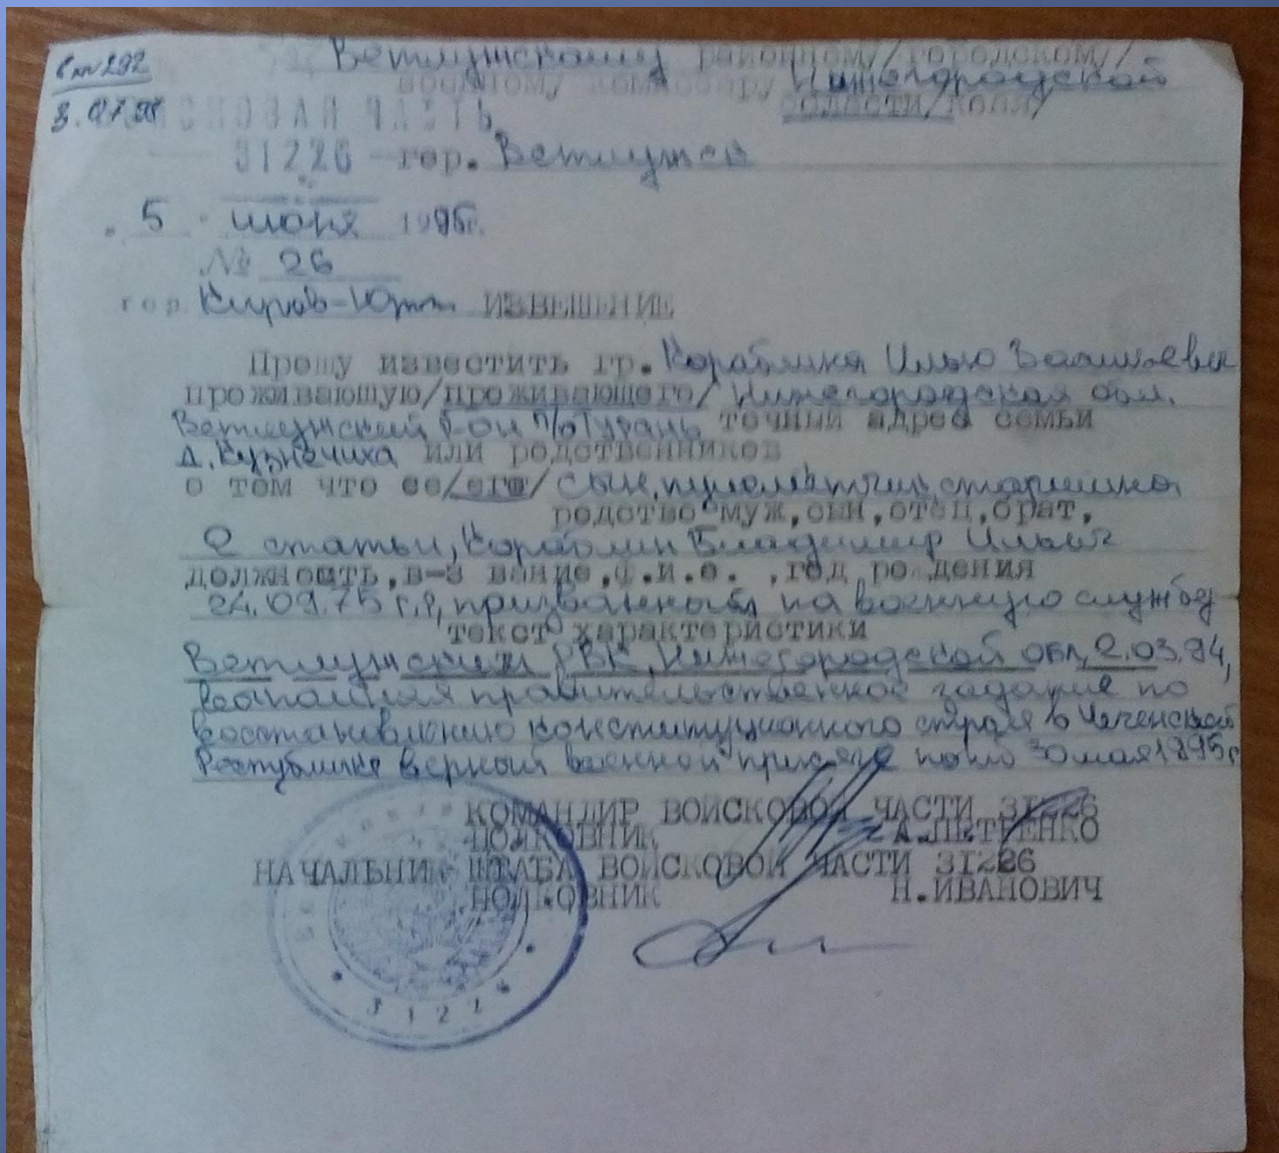 вх 292
Ветлужскому районному/городскому/
военному комиссару Нижегородской
3.07.95
области/края/
ВОЙСКОВАЯ ЧАСТЬ
31226 гор. Ветлужск
" 5 " июня 1995г.
№ 26
гор. Киров-Юрт ИЗВЕЩЕНИЕ
Прошу известить гр. Кораблина Илью Васильевича
проживающую/проживающего/ Нижегородская обл.
Ветлужский р-он п/о Турань точный адрес семьи
д. Кузнечиха или родственников
о том что ее/его/ сын, пулеметчик, старшина
родство муж, сын, отец, брат,
2 статьи, Кораблин Владимир Ильич
должность, в-звание, ф.и.о., год рождения
24.09.75 г.р, призванный на военную службу
текст характеристики
Ветлужским РВК, Нижегородской обл, 2.03.94,
выполняя правительственное задание по
восстановлению конституционного строя в Чеченской
Республике верный военной присяге погиб 30 мая 1995г
КОМАНДИР ВОЙСКОВОЙ ЧАСТИ 31226
ПОЛКОВНИК А.ПЕТРЕНКО
НАЧАЛЬНИК ШТАБА ВОЙСКОВОЙ ЧАСТИ 31226
ПОЛКОВНИК Н.ИВАНОВИЧ
3 1 2 2 6